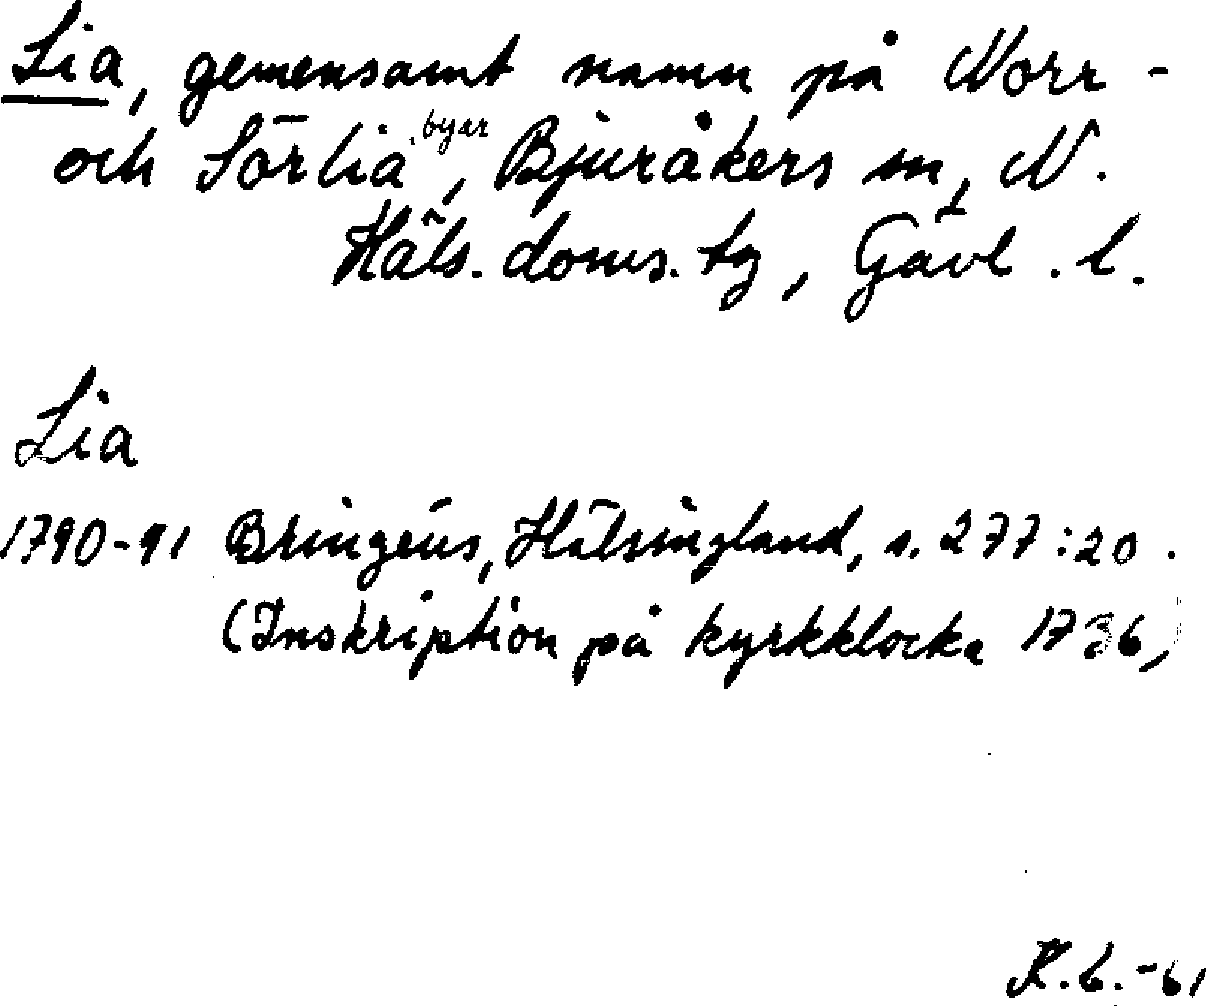 Lia, gemensamt namn på Norr-
och Sörlia byar, Bjuråkers sn, N.
Häls. doms. tg, Gävl. l.
Lia
1790-91 Bringéus, Hälsingland, s. 277:20.
(Inskription på kyrkklocka 1736)
R.6.-61